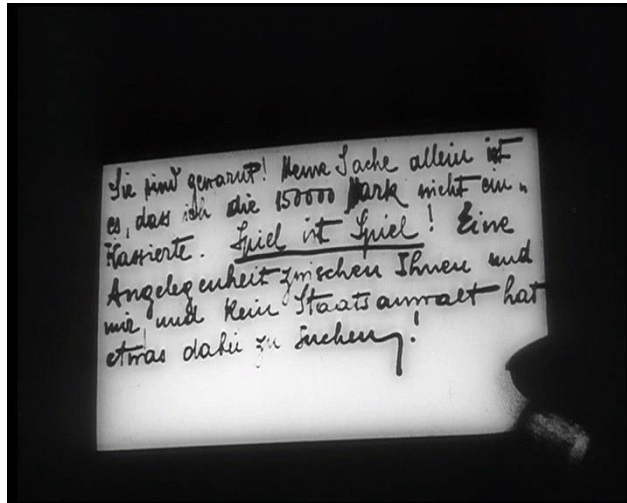 Sie sind gewarnt! Meine Sache allein ist
es, dass ich die 150000 Mark nicht ein-
kassierte. Spiel ist Spiel! Eine
Angelegenheit zwischen Ihnen und
mir und kein Staatsanwalt hat
etwas dabei zu suchen!